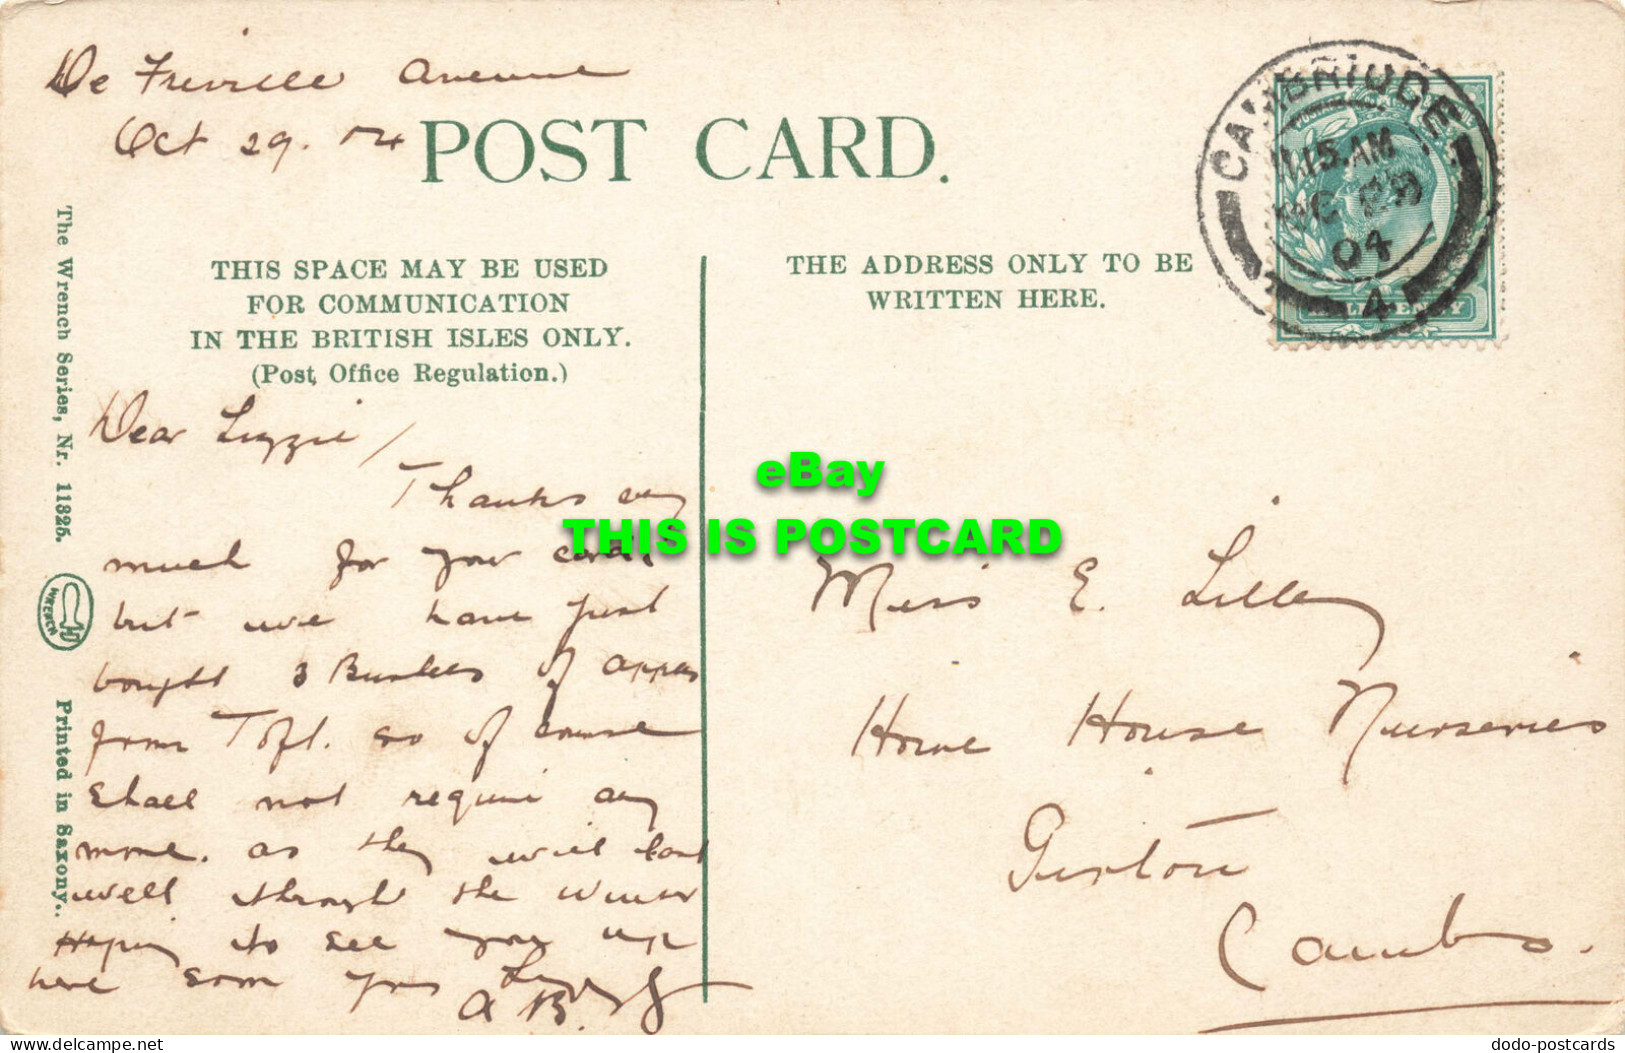 De Freville Avenue
Oct 29. 04
POST CARD.
CAMBRIDGE
11.15 AM
OC 29
04
4
THIS SPACE MAY BE USED
FOR COMMUNICATION
IN THE BRITISH ISLES ONLY.
(Post Office Regulation.)
THE ADDRESS ONLY TO BE
WRITTEN HERE.
The Wrench Series, Nr. 11325.
WRENCH
Printed in Saxony.
Dear Lizzie/
Thanks very
much for your card,
but we have just
bought 3 Bushels of apples
from Toft. so of course
shall not require any
more. as they will last
well through the winter
Hoping to see you up
here soon yrs
A B.
Miss E. Lilley
Home House Nurseries
Girton
Cambs.
eBay
THIS IS POSTCARD
delcampe.net
dodo-postcards